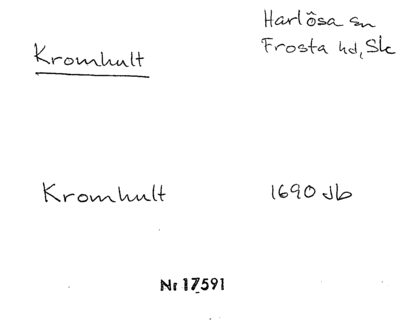 Kromhult
Harlôsa sn
Frosta hd, Sk
Kromhult
1690 Jb
Nr 17591